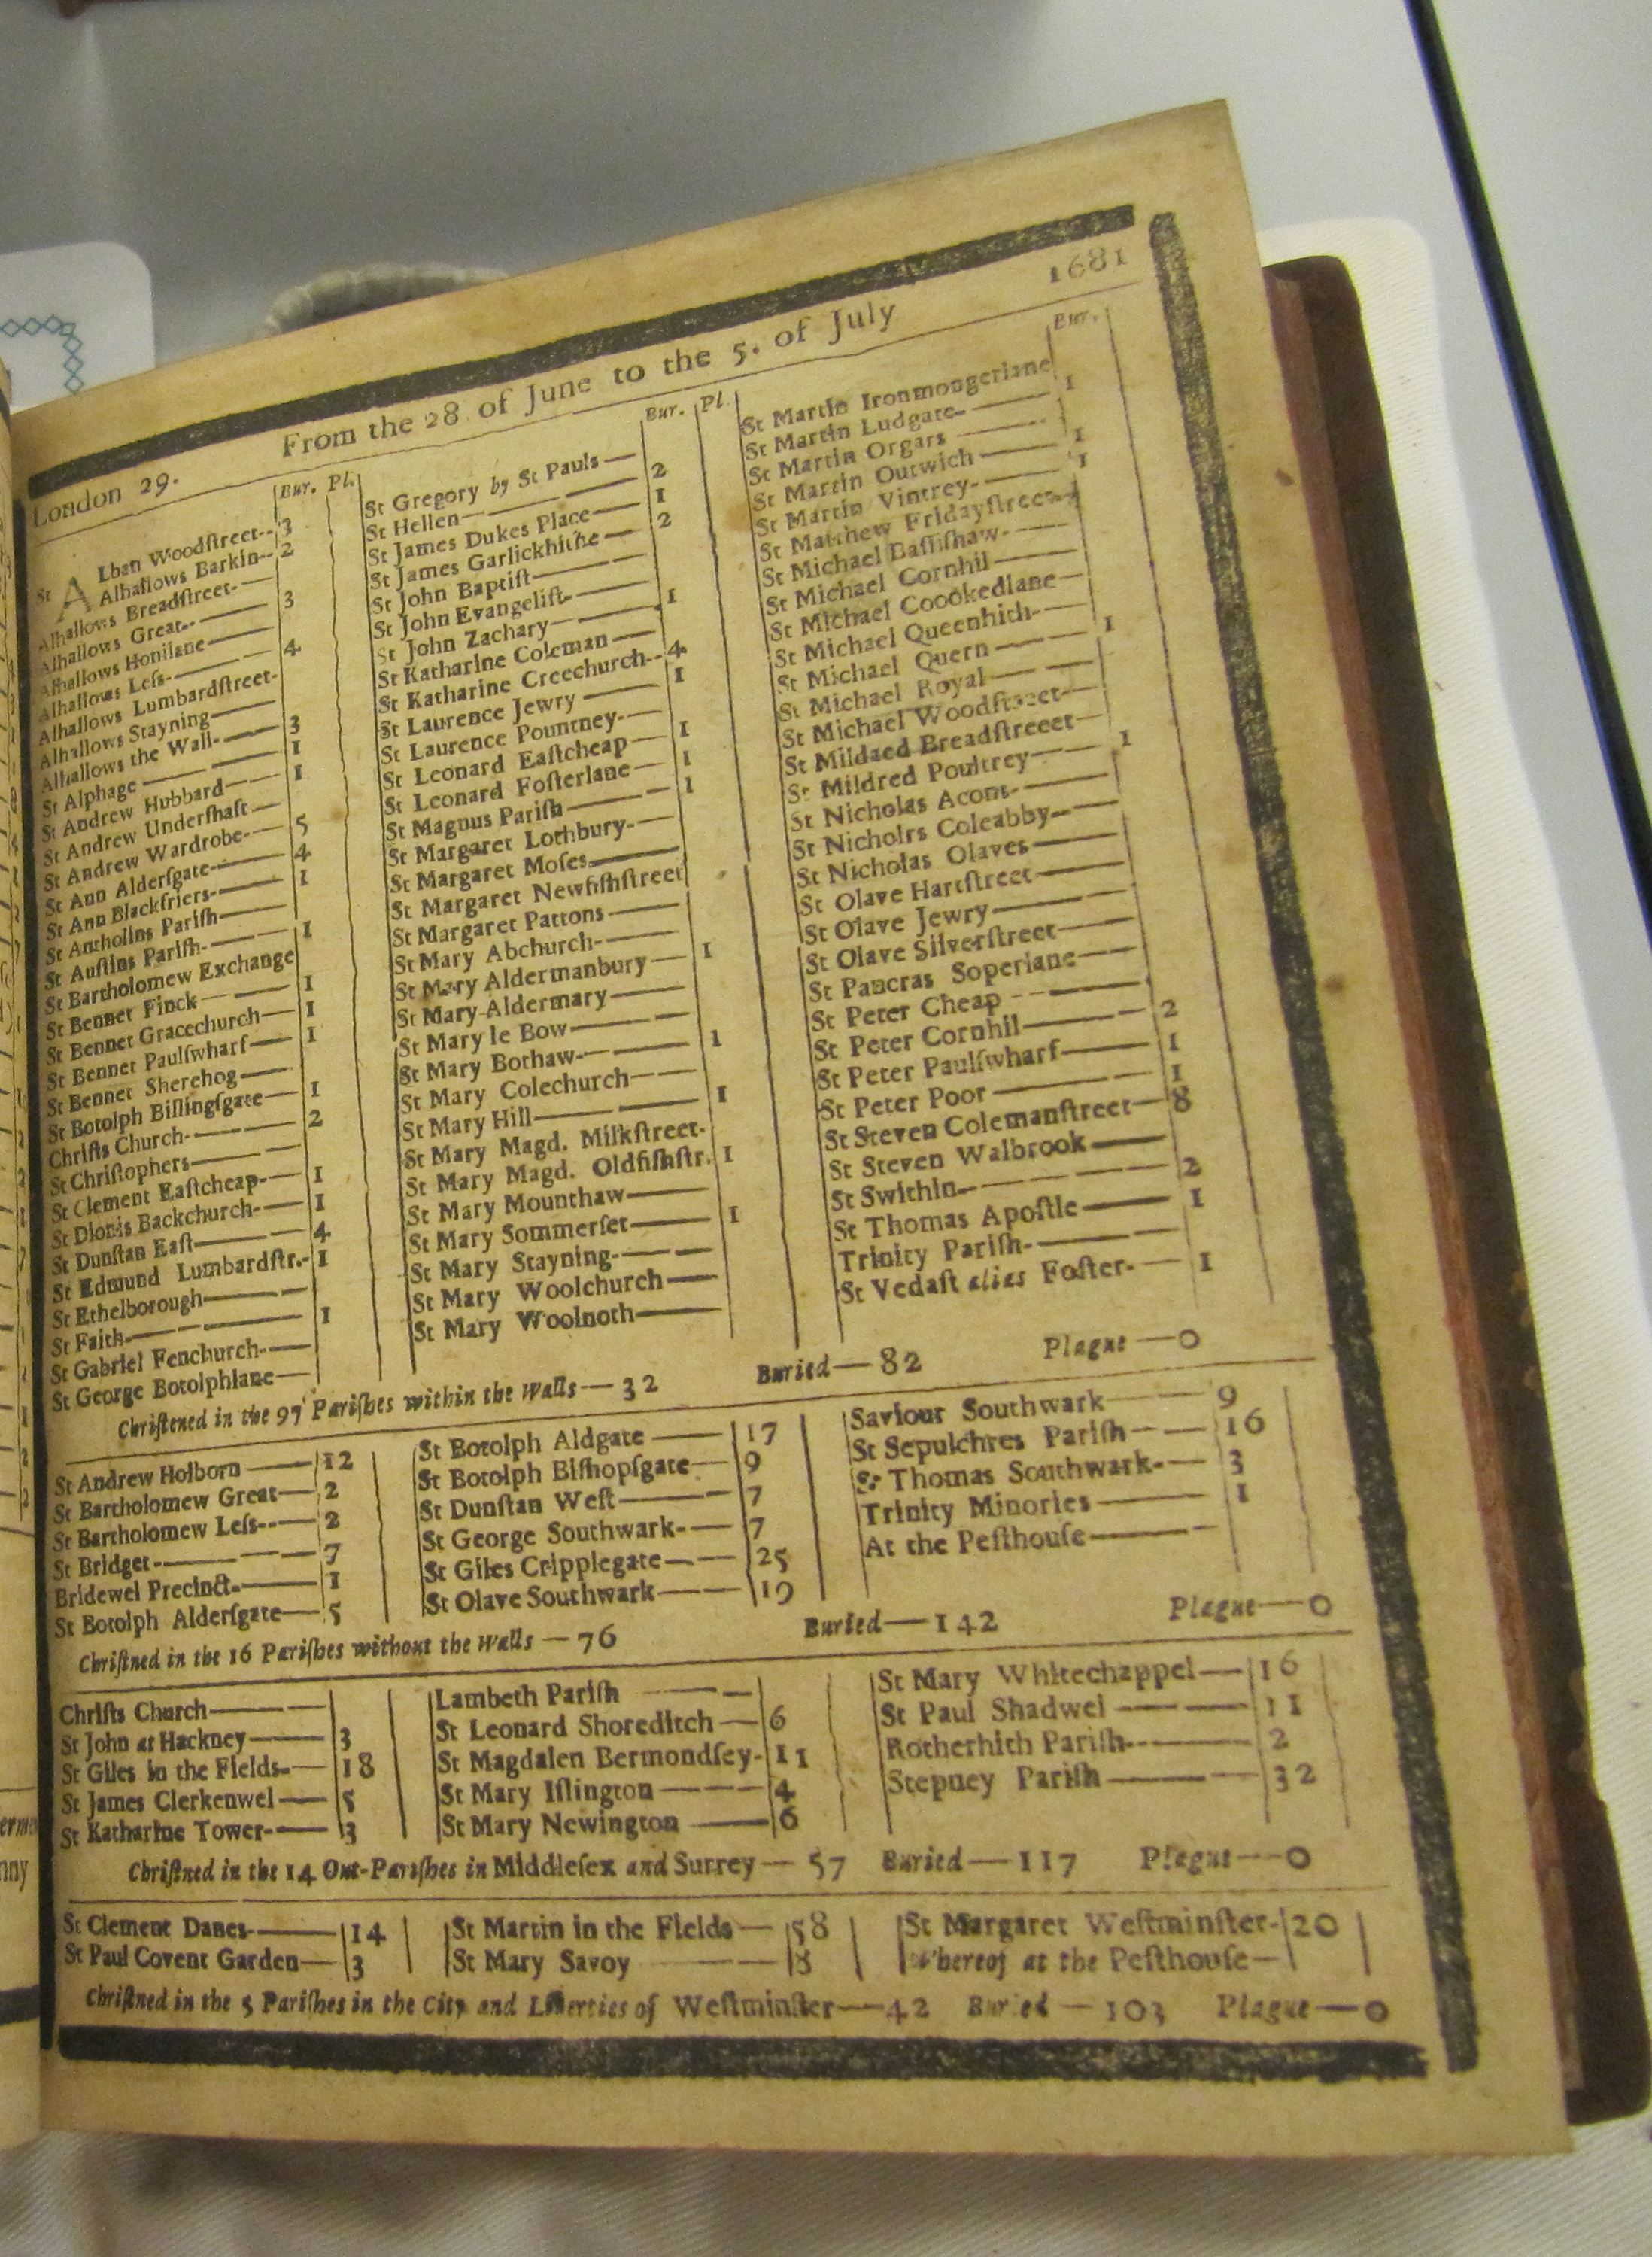 London 29. From the 28 of June to the 5. of July 1681
Bur. Pl.
St ALban Woodſtreet 3
Alhallows Barkin 2
Alhallows Breadſtreet
Alhallows Great 3
Alhallows Honilane
Alhallows Leſs 4
Alhallows Lumbardſtreet
Alhallows Stayning
Alhallows the Wall 3
St Alphage 1
St Andrew Hubbard 1
St Andrew Underſhaft
St Andrew Wardrobe 5
St Ann Alderſgate 4
St Ann Blackfriers 1
St Antholins Pariſh
St Auſtins Pariſh 1
St Bartholomew Exchange
St Bennet Finck 1
St Bennet Gracechurch 1
St Bennet Paulſwharf 1
St Bennet Sherehog
St Botolph Billingſgate 1
Chriſts Church 2
St Chriſtophers
St Clement Eaſtcheap 1
St Dionis Backchurch 1
St Dunſtan Eaſt 4
St Edmund Lumbardſtr. 1
St Ethelborough
St Faith 1
St Gabriel Fenchurch
St George Botolphlane
Bur. Pl
St Gregory by St Pauls
St Hellen 2
St James Dukes Place 1
St James Garlickhithe 2
St John Baptiſt
St John Evangeliſt
St John Zachary 1
St Katharine Coleman
St Katharine Creechurch 4
St Laurence Jewry 1
St Laurence Pountney
St Leonard Eaſtcheap 1
St Leonard Foſterlane 1
St Magnus Pariſh 1
St Margaret Lothbury
St Margaret Moſes
St Margaret Newfiſhſtreet
St Margaret Pattons
St Mary Abchurch
St Mary Aldermanbury 1
St Mary Aldermary
St Mary le Bow
St Mary Bothaw 1
St Mary Colechurch
St Mary Hill 1
St Mary Magd. Milkſtreet
St Mary Magd. Oldfiſhſtr. 1
St Mary Mounthaw
St Mary Sommerſet 1
St Mary Stayning
St Mary Woolchurch
St Mary Woolnoth
Bur.
St Martin Ironmongerlane
St Martin Ludgate 1
St Martin Orgars
St Martin Outwich 1
St Martin Vintrey 1
St Matthew Fridayſtreet
St Michael Baſſiſhaw
St Michael Cornhil
St Michael Coookedlane
St Michael Queenhith
St Michael Quern 1
St Michael Royal
St Michael Woodſtreet
St Mildaed Breadſtreeet
St Mildred Poultrey 1
St Nicholas Acons
St Nicholrs Coleabby
St Nicholas Olaves
St Olave Hartſtreet
St Olave Jewry
St Olave Silverſtreet
St Pancras Soperlane
St Peter Cheap
St Peter Cornhil 2
St Peter Paulſwharf 1
St Peter Poor 1
St Steven Colemanſtreet 8
St Steven Walbrook
St Swithin 2
St Thomas Apoſtle 1
Trinity Pariſh
St Vedaſt alias Foſter 1
Chriſtened in the 97 Pariſhes within the Walls — 32 Buried — 82 Plague — 0
St Andrew Holborn 12
St Bartholomew Great 2
St Bartholomew Leſs 2
St Bridget 7
Bridewel Precinct 1
St Botolph Alderſgate 5
St Botolph Aldgate 17
St Botolph Biſhopſgate 9
St Dunſtan Weſt 7
St George Southwark 7
St Giles Cripplegate 25
St Olave Southwark 19
Saviour Southwark 9
St Sepulchres Pariſh 16
St Thomas Southwark 3
Trinity Minories 1
At the Peſthouſe
Chriſtned in the 16 Pariſhes without the Walls — 76 Buried — 142 Plague — 0
Chriſts Church
St John at Hackney 3
St Giles in the Fields 18
St James Clerkenwel 5
St Katharine Tower 3
Lambeth Pariſh
St Leonard Shoreditch 6
St Magdalen Bermondſey 11
St Mary Iſlington 4
St Mary Newington 6
St Mary Whitechappel 16
St Paul Shadwel 11
Rotherhith Pariſh 2
Stepney Pariſh 32
Chriſtned in the 14 Out-Pariſhes in Middleſex and Surrey — 57 Buried — 117 Plague — 0
St Clement Danes 14
St Paul Covent Garden 3
St Martin in the Fields 58
St Mary Savoy 8
St Margaret Weſtminſter 20
Whereof at the Peſthouſe
Chriſtned in the 5 Pariſhes in the City and Liberties of Weſtminſter — 42 Buried — 103 Plague — 0